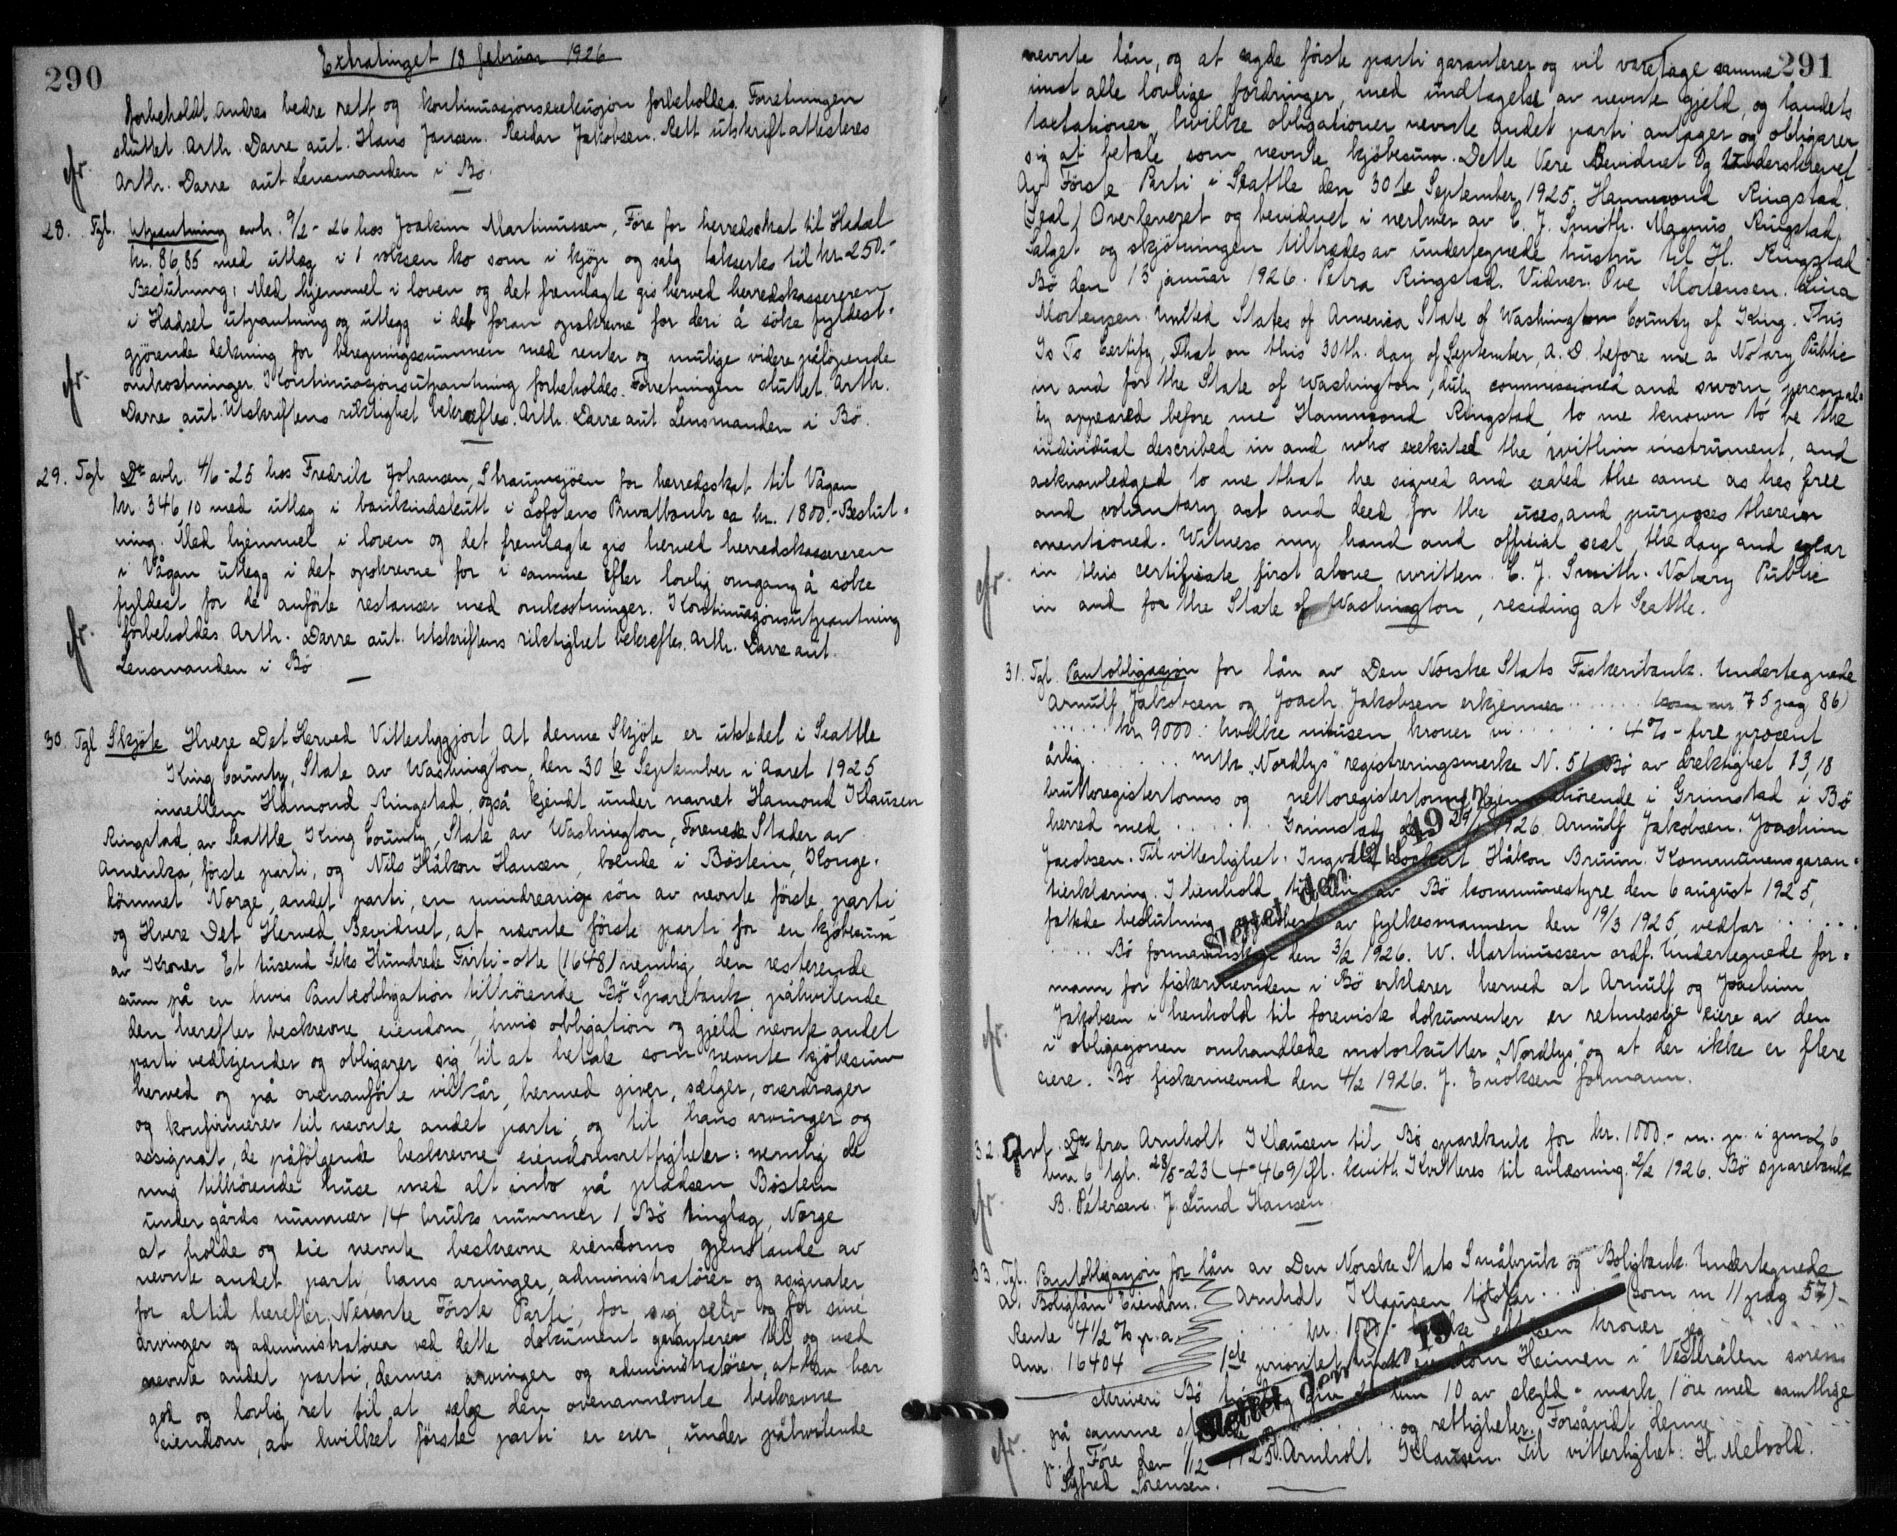 290
Extratinget 18 februar 1926
forbeholdt andres bedre rett og kontinuasjonseksekusjon forbeholdes. Forretningen
sluttet. Arth. Darre aut. Hans Jensen. Reidar Jakobsen. Rett utskrift attesteres
Arth. Darre aut Lensmanden i Bø.
28. Tgl. Utpantning avh. 9/2-26 hos Joakim Martinussen, Føre for herredsskat til Hadsel
kr. 86,85 med utlæg i 1 voksen ko som i kjøp og salg takseres til kr. 250.-
Beslutning: Med hjemmel i loven og det fremlagte gis herved herredskassereren
i Hadsel utpantning og utlegg i det foran opskrevne for deri å søke fyldest-
gjørende dekning for beregningssummen med renter og mulige videre påløpende
omkostninger. Kontinuasjonsutpantning forbeholdes. Forretningen sluttet. Arth.
Darre aut. Utskriftens riktighet bekreftes. Arth. Darre aut Lensmanden i Bø.
29. Tgl Do avh. 4/6-25 hos Fredrik Johansen, Straumsjøen for herredsskat til Vågan
kr. 346 10 med utlæg i bankindskutt i Lofotens Privatbank ca kr. 1800.- Beslut-
ning. Med hjemmel i loven og det fremlagte gis herved herredskassereren
i Vågan utlegg i det opskrevne for i samme efter lovlig omgang å søke
fyldest for de anførte restanser med omkostninger. Kontinuasjonsutpantning
forbeholdes. Arth. Darre aut. Utskriftens riktighet bekreftes. Arth. Darre aut.
Lensmanden i Bø
30. Tgl Skjøte Hvere Det Herved Vitterliggjort, At denne Skjøte er utstedet i Seattle
King County, State av Washington, den 30 te September i Aaret 1925
imellem Hamond Ringstad, også kjendt under navnet Hamond Klausen
Ringstad, av Seattle, King County, State av Washington, Forenede Stader av
Amerika, første parti, og Nils Håkon Hansen, boende i Bøstein, Konge-
dømmet Norge, andet parti, en mindreårig søn av nevnte første parti
og Hvere Det Herved Bevidnet, at nævnte første parti for en kjøbesum
av Kroner Et tusend Seks Hundrede Firti-otte (1648) nemlig den resterende
sum på en hvis Panteobligation tilhørende Bø Sparebank påhvilende
den herefter beskrevne eiendom, hvis obligation og gjeld nevnte andet
parti vedkjender og obligarer sig til at betale som nevnte kjøbesum
herved og på ovenanførte vilkår, hermed giver, sælger, overdrager
og konfirmerer til nevnte andet parti, og til hans arvinger og
assignat, de påfølgende beskrevne eiendomsrettigheter: nemlig de
mig tilhørende huse med alt inbo på pladsen Bøstein
under gårds nummer 14 bruks nummer 1, Bø tinglag, Norge
at holde og eie nevnte beskrevne eiendoms gjenstande av
nevnte andet parti, hans arvinger, administratører og asignater
for altid herefter. Nevnte Første Parti, for sig selv og for sine
arvinger og administratører ved dette dokument garanterer til og med
nevnte andet parti, dennes arvinger og administratører, at han har
god og lovlig ret til at sælge den ovenannevnte beskrevne
eiendom, av hvilket første parti er eier, under påhvilende
291
nevnte lån, og at sagde første parti garanterer og vil varetage samme
imot alle lovlige fordringer, med undtagelse av nevnte gjeld, og landets
taxtationer, hvilke obligationer nevnte andet parti antager og obligarer
sig at betale som nevnte kjøbesum. Dette Vere Bevidnet og Underskrevet
Av Første Parti i Seattle den 30 te September 1925. Hammond Ringstad.
(Seal) Overleveret og bevidnet i nerhver av C. J. Smith. Magnus Ringstad.
Salget og skjøtningen tiltrædes av undertegnede hustru til H. Ringstad
Bø den 13 januar 1926. Petra Ringstad. Vidner. Ove Mortensen. Lina
Mortensen. United States of America State of Washington County of King. This
Is To Certify, That on this 30th. day of September, A. D. before me a Notary Public
in and for the State of Washington, duly commissioned and sworn, personal-
ly appeared before me Hammond Ringstad to me known to be the
individual described in and who exekuted the within instrument, and
acknowledged to me that he signed and sealed the same as hes free
and voluntary act and deed for the uses and purposes therein
mentioned. Witness my hand and official seal the day and year
in this certificate first above written. C. J. Smith. Notary Public
in and for the State of Washington, residing at Seattle.
31. Tgl. Pantobligasjon for lån av Den Norske Stats Fiskeribank. Undertegnede
Arnulf Jakobsen og Joach. Jakobsen erkjenner ..... (som nr 75 pag 86)
..... kr 9000: hvilke nitusen kroner vi ..... 4% - fire procent
årlig ..... m/k "Nordlys" registreringsmerke N. 51 Bø av drektighet 13,18
bruttoregistertonns og nettoregistertonns hjemmehørende i Grimstad i Bø
herred med ..... Grimstad 29/1 1926. Arnulf Jakobsen. Joachim
Jacobsen. Til vitterlighet. Ingvald Håkon Bruun. Kommunens garan-
tierklæring. I henhold til den av Bø kommunestyre den 6 august 1925,
fattede beslutning av fylkesmannen den 19/3 1925, vedtar .....
..... Bø formannskap den 3/2 1926. W. Martinussen ordf. Undertegnede for-
mann for fiskerinevnden i Bø erklærer herved at Arnulf og Joachim
Jakobsen i henhold til foreviste dokumenter er retmessige eiere av den
i obligasjonen omhandlede motorkutter "Nordlys", og at der ikke er flere
eiere. Bø fiskerinevnd den 4/2 1926. J. Enoksen formann.
32. Do fra Arnholt Klausen til Bø sparebank for kr. 1000.- m. p. i gnr 26
bnr 6, tgl. 28/5-23 (4-469) Kvitteres til avlæsning. 2/2 1926. Bø sparebank
B. Petersen. J. Lund Hansen.
33. Tgl. Pantobligasjon for lån av Den Norske Stats Småbruk og Boligbank. Undertegnede
Boliglån Eiendom. Arnholt Klausen tilstår ..... (som nr 11 pag 57)-
Rente 4 1/2 % p. a. ..... kr. 1000/- hvilke ettusen kroner jeg .....
Ann. 16404 1ste prioritet eiendom Heimen i Vesterålen soren-
skriveri Bø 10 av skyld - mark 1 øre med samtlige
på samme ..... og rettigheter. Forsåvidt denne .....
Føre den 1/2 Arnholt Klausen. Til vitterlighet: H. Melvold.
Sigfred Sørensen.
Slettet den 19
Slettet den 19